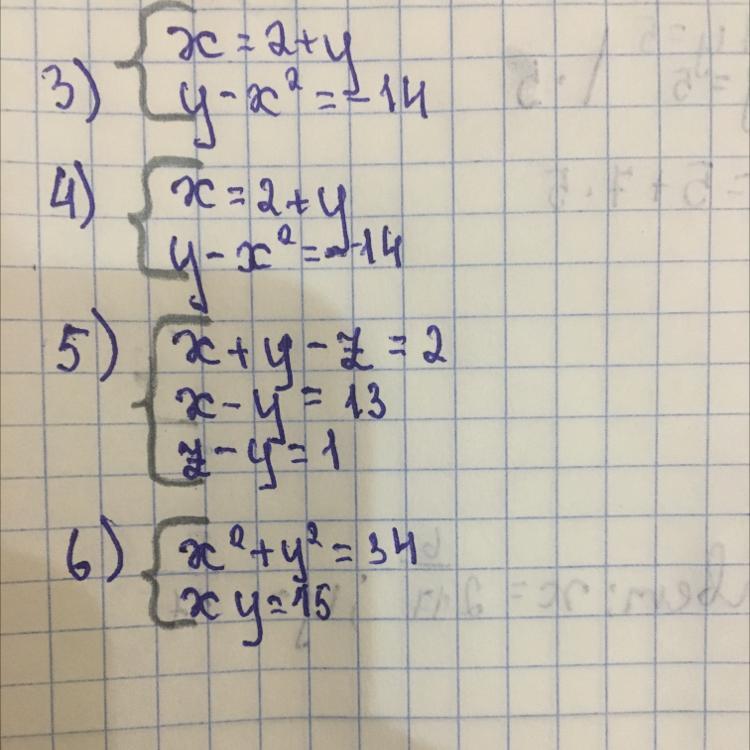 3) x = 2 + y
y - x² = -14
4) x = 2 + y
y - x² = -14
5) x + y - z = 2
x - y = 13
z - y = 1
6) x² + y² = 34
xy = 15